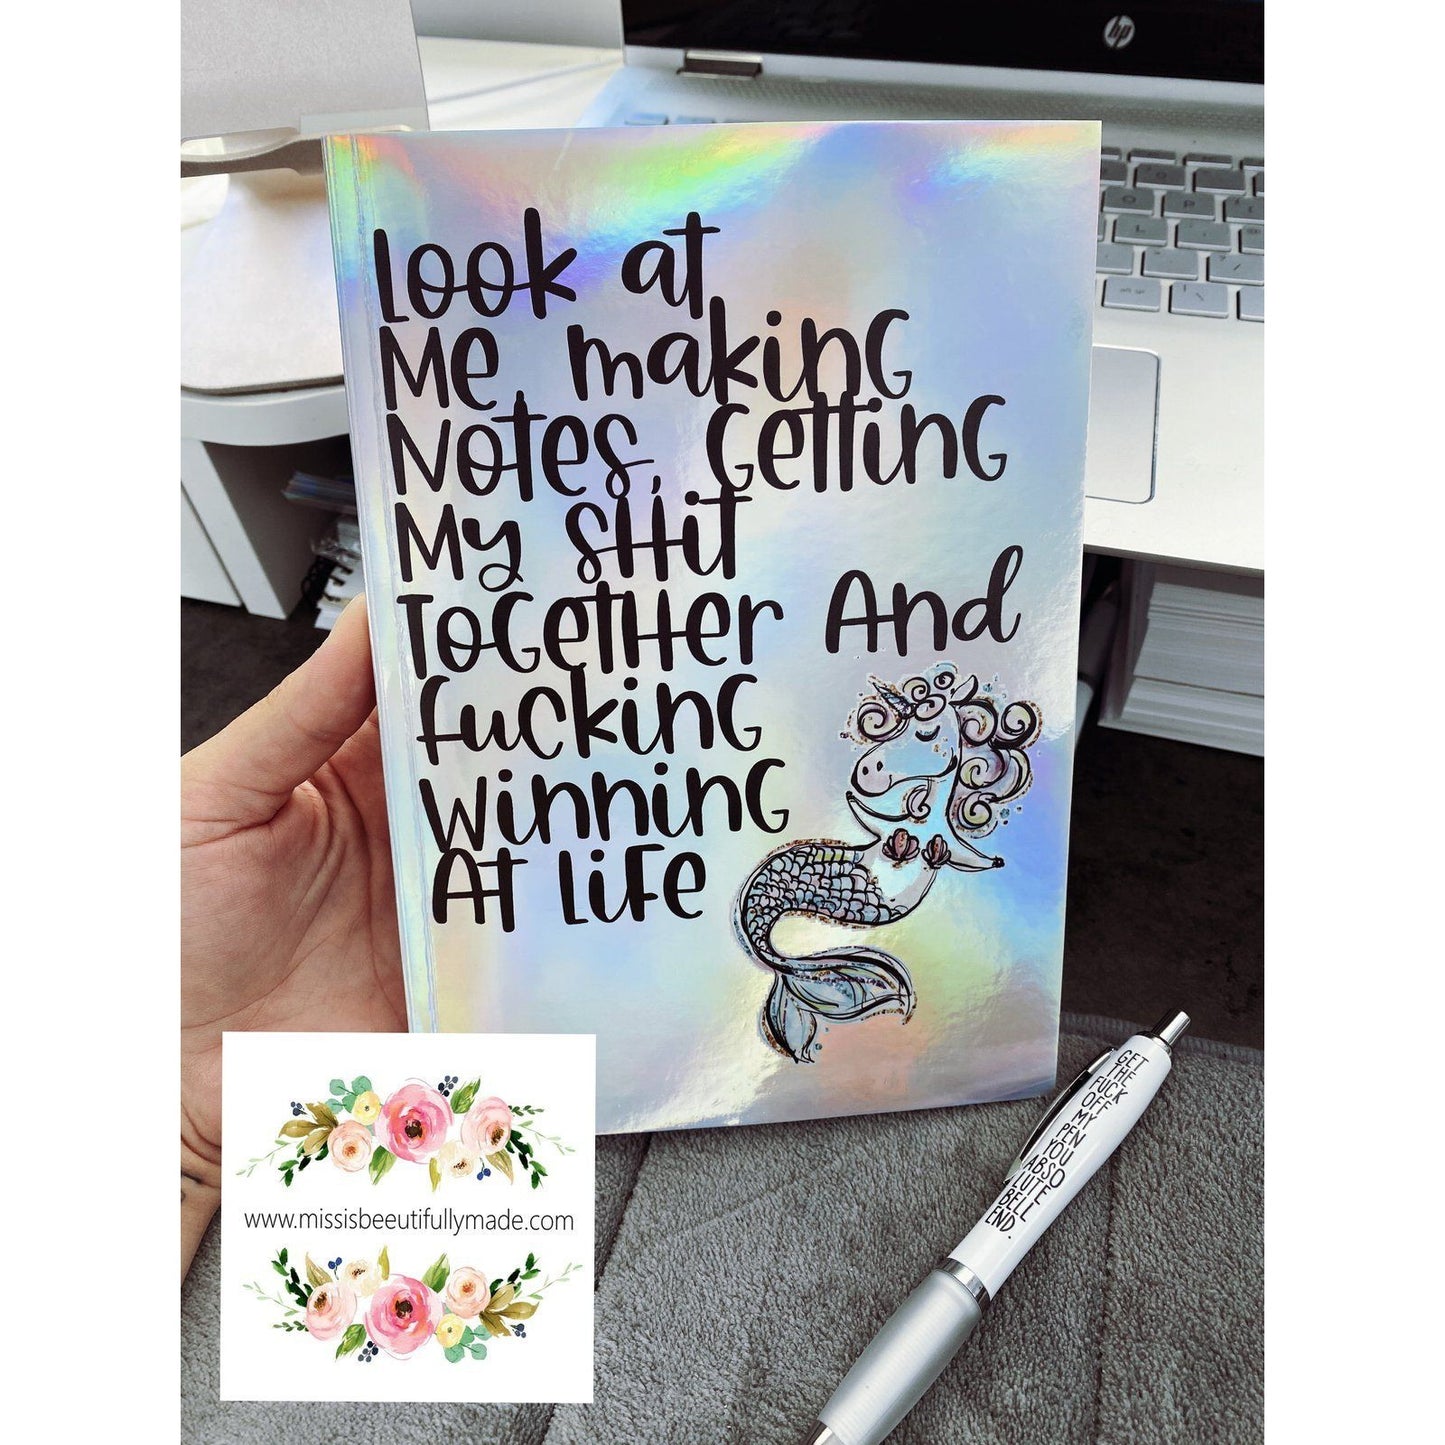 hp
Look at
Me, making
Notes, Getting
My shit
Together And
fucking
winning
At Life
GET
THE
FUCK
OFF
MY
PEN
YOU
ABSO
LUTE
BELL
END.
www.missisbeeutifullymade.com